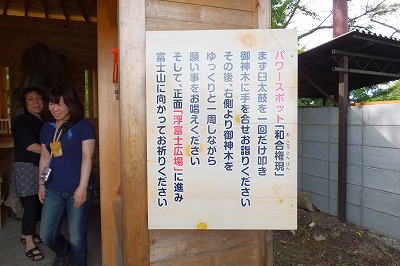 パワースポット「和合権現」
わごうごんげん
まず臼太鼓を一回だけ叩き
御神木に手を合せお詣りください
その後、右側より御神木を
ゆっくりと一周しながら
願い事をお唱えください
そして、正面「浮富士広場」に進み
富士山に向かってお祈りください